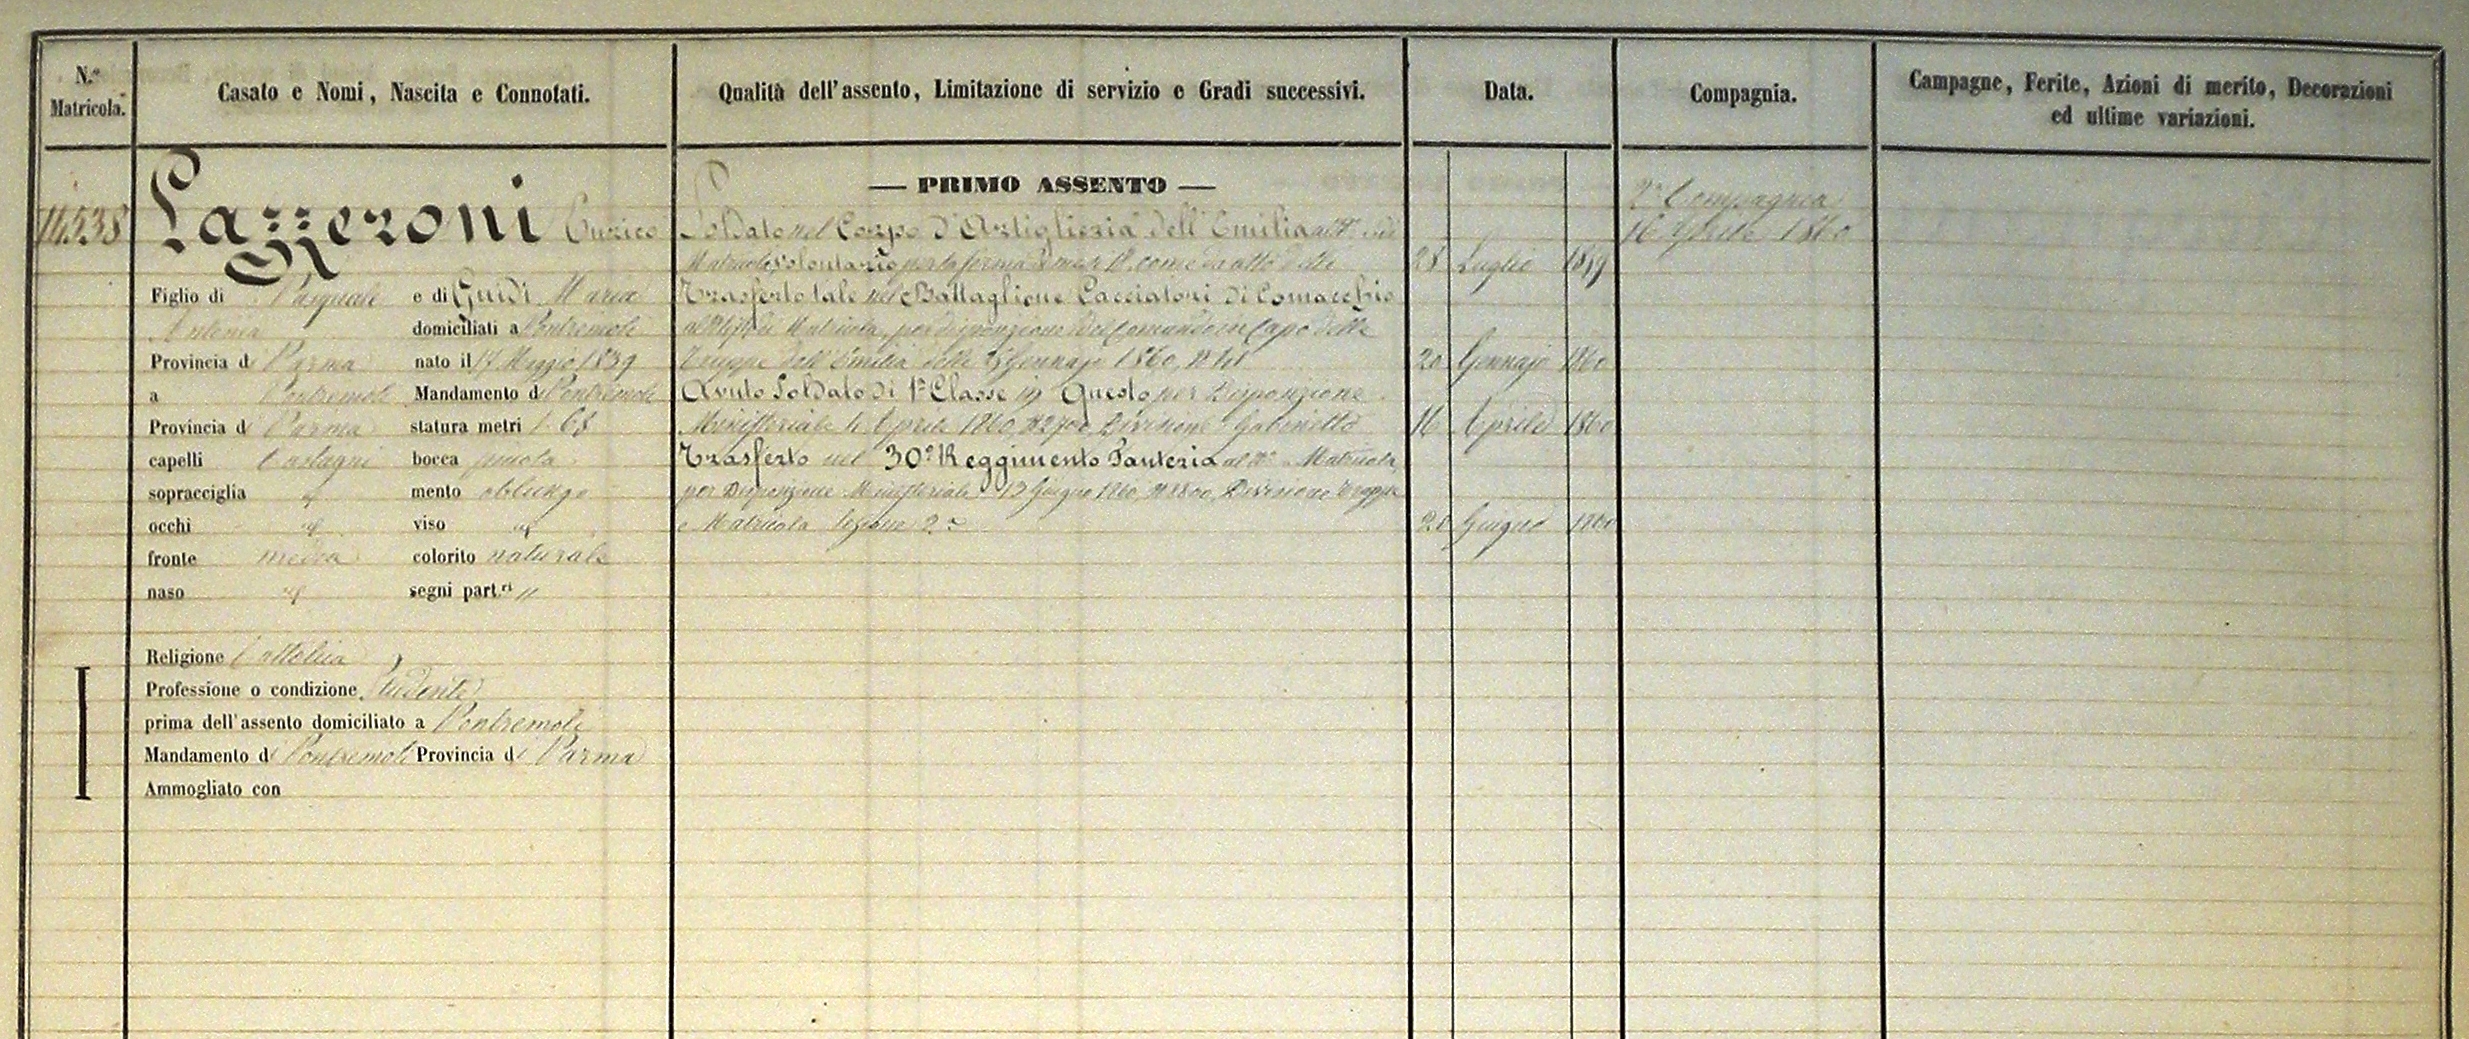 N.° Matricola.
Casato e Nomi, Nascita e Connotati.
Qualità dell'assento, Limitazione di servizio e Gradi successivi.
Data.
Compagnia.
Campagne, Ferite, Azioni di merito, Decorazioni
ed ultime variazioni.
14538
Lazzeroni Enrico
Figlio di Pasquale e di Guidi Maria
Antonia domiciliati a Pontremoli
Provincia di Parma nato il 17 Maggio 1839
a Pontremoli Mandamento di Pontremoli
Provincia di Parma statura metri 1. 68
capelli Castagni bocca piccola
sopracciglia mento oblungo
occhi viso
fronte media colorito naturale
naso segni part.ri "
Religione Cattolica
Professione o condizione Studente
prima dell'assento domiciliato a Pontremoli
Mandamento di Pontremoli Provincia di Parma
Ammogliato con
— PRIMO ASSENTO —
Soldato nel Corpo d'Artiglieria dell'Emilia al N° di
Matricola volontario per la ferma di mesi 18 come da atto delli 28 Luglio 1859
Trasferto tale nel Battaglione Cacciatori di Comacchio
di Matricola, per disposizione del Comando in Capo delle
Truppe dell'Emilia delli Gennajo 1860, N° 20 Gennajo 1860
Avuto Soldato di 1ª Classe in Questo per Disposizione
Ministeriale Aprile 1860, N 2700, Divisione Gabinetto 16 Aprile 1860
Trasferto nel 30° Reggimento Fanteria al N° Matricola,
per Disposizione Ministeriale 13 Giugno 1860, N 8800, Divisione Truppe
e Matricola Sezione 2ª Giugno 1860
Compagnia
16 Aprile 1860